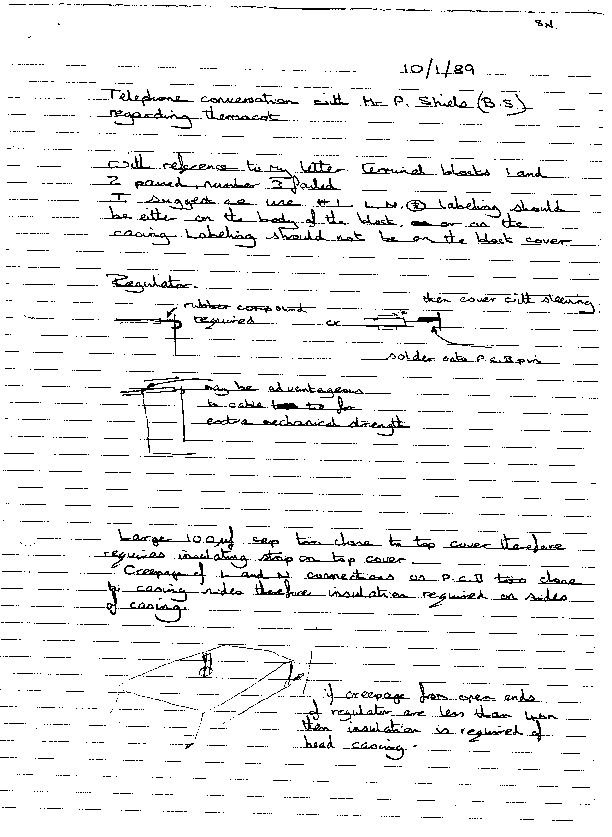 SN
10/1/89
Telephone conversation with Mr P. Shiels (B.S)
regarding thermacot
With reference to my letter terminal blocks 1 and
2 passed, number 3 failed
I suggest we use #1 L.N. ⏚ labeling should
be either on the body of the block, or on the
casing Labeling should not be on the block cover
Regulator.
rubber compound
required
or
then cover with sleeving
solder onto P.C.B pin
may be advantageous
to cable to for
extra mechanical strength
Larger 100µf cap too close to top cover therefore
requires insulating strip on top cover.
Creepage of L and N connections on P.C.B too close
to casing sides therefore insulation required on sides
of casing.
if creepage from open ends
of regulator are less than
then insulation is required of
head casing.